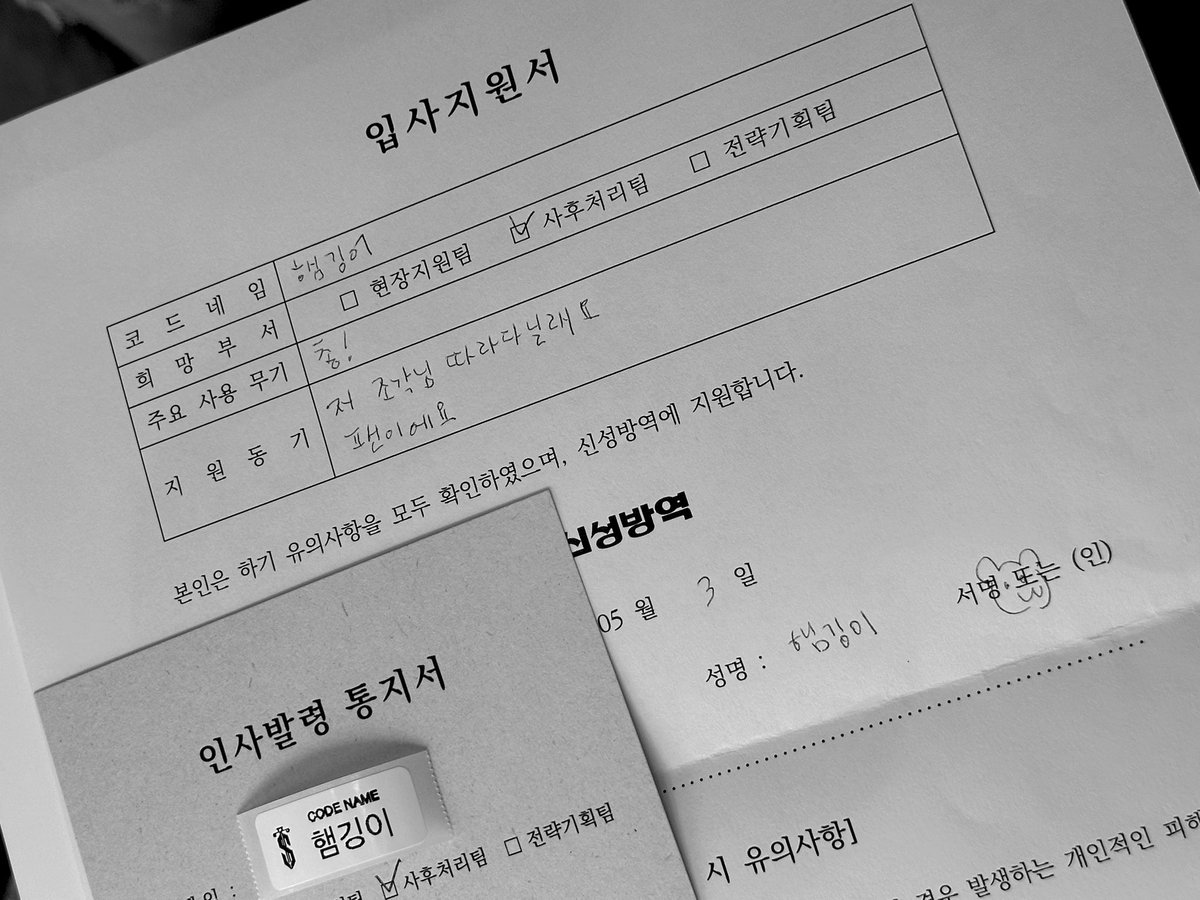 입사지원서
코드네임 햄깅이
희망부서 □ 현장지원팀 ☑ 사후처리팀 □ 전략기획팀
주요 사용 무기 총!
지원동기 저 조각님 따라다닐래요
팬이에요
본인은 하기 유의사항을 모두 확인하였으며, 신성방역에 지원합니다.
신성방역
05 월 3 일
성명 : 햄깅이 서명 또는 (인)
시 유의사항]
경우 발생하는 개인적인 피해
인사발령 통지서
CODE NAME
햄깅이
☑ 사후처리팀 □ 전략기획팀